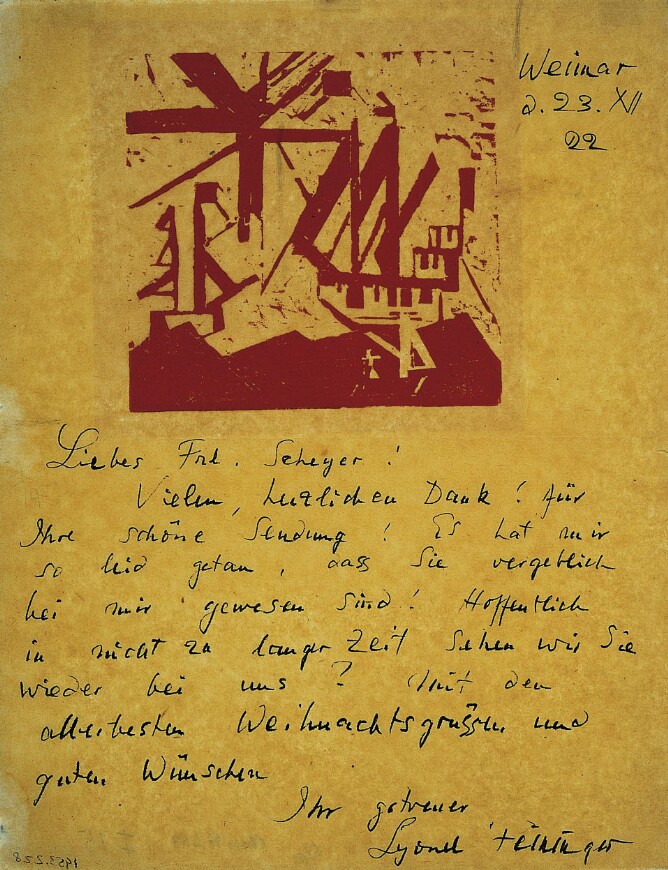 Weimar
d. 23. XII
22
Liebes Frl. Scheyer!
Vielen, herzlichen Dank! für
Ihre schöne Sendung! Es hat mir
so leid getan, dass Sie vergeblich
bei mir gewesen sind! Hoffentlich
in nicht zu langer Zeit sehen wir Sie
wieder bei uns? Mit den
allerbesten Weihnachtsgrüssen und
guten Wünschen
Ihr getreuer
Lyonel Feininger
1953.2.28